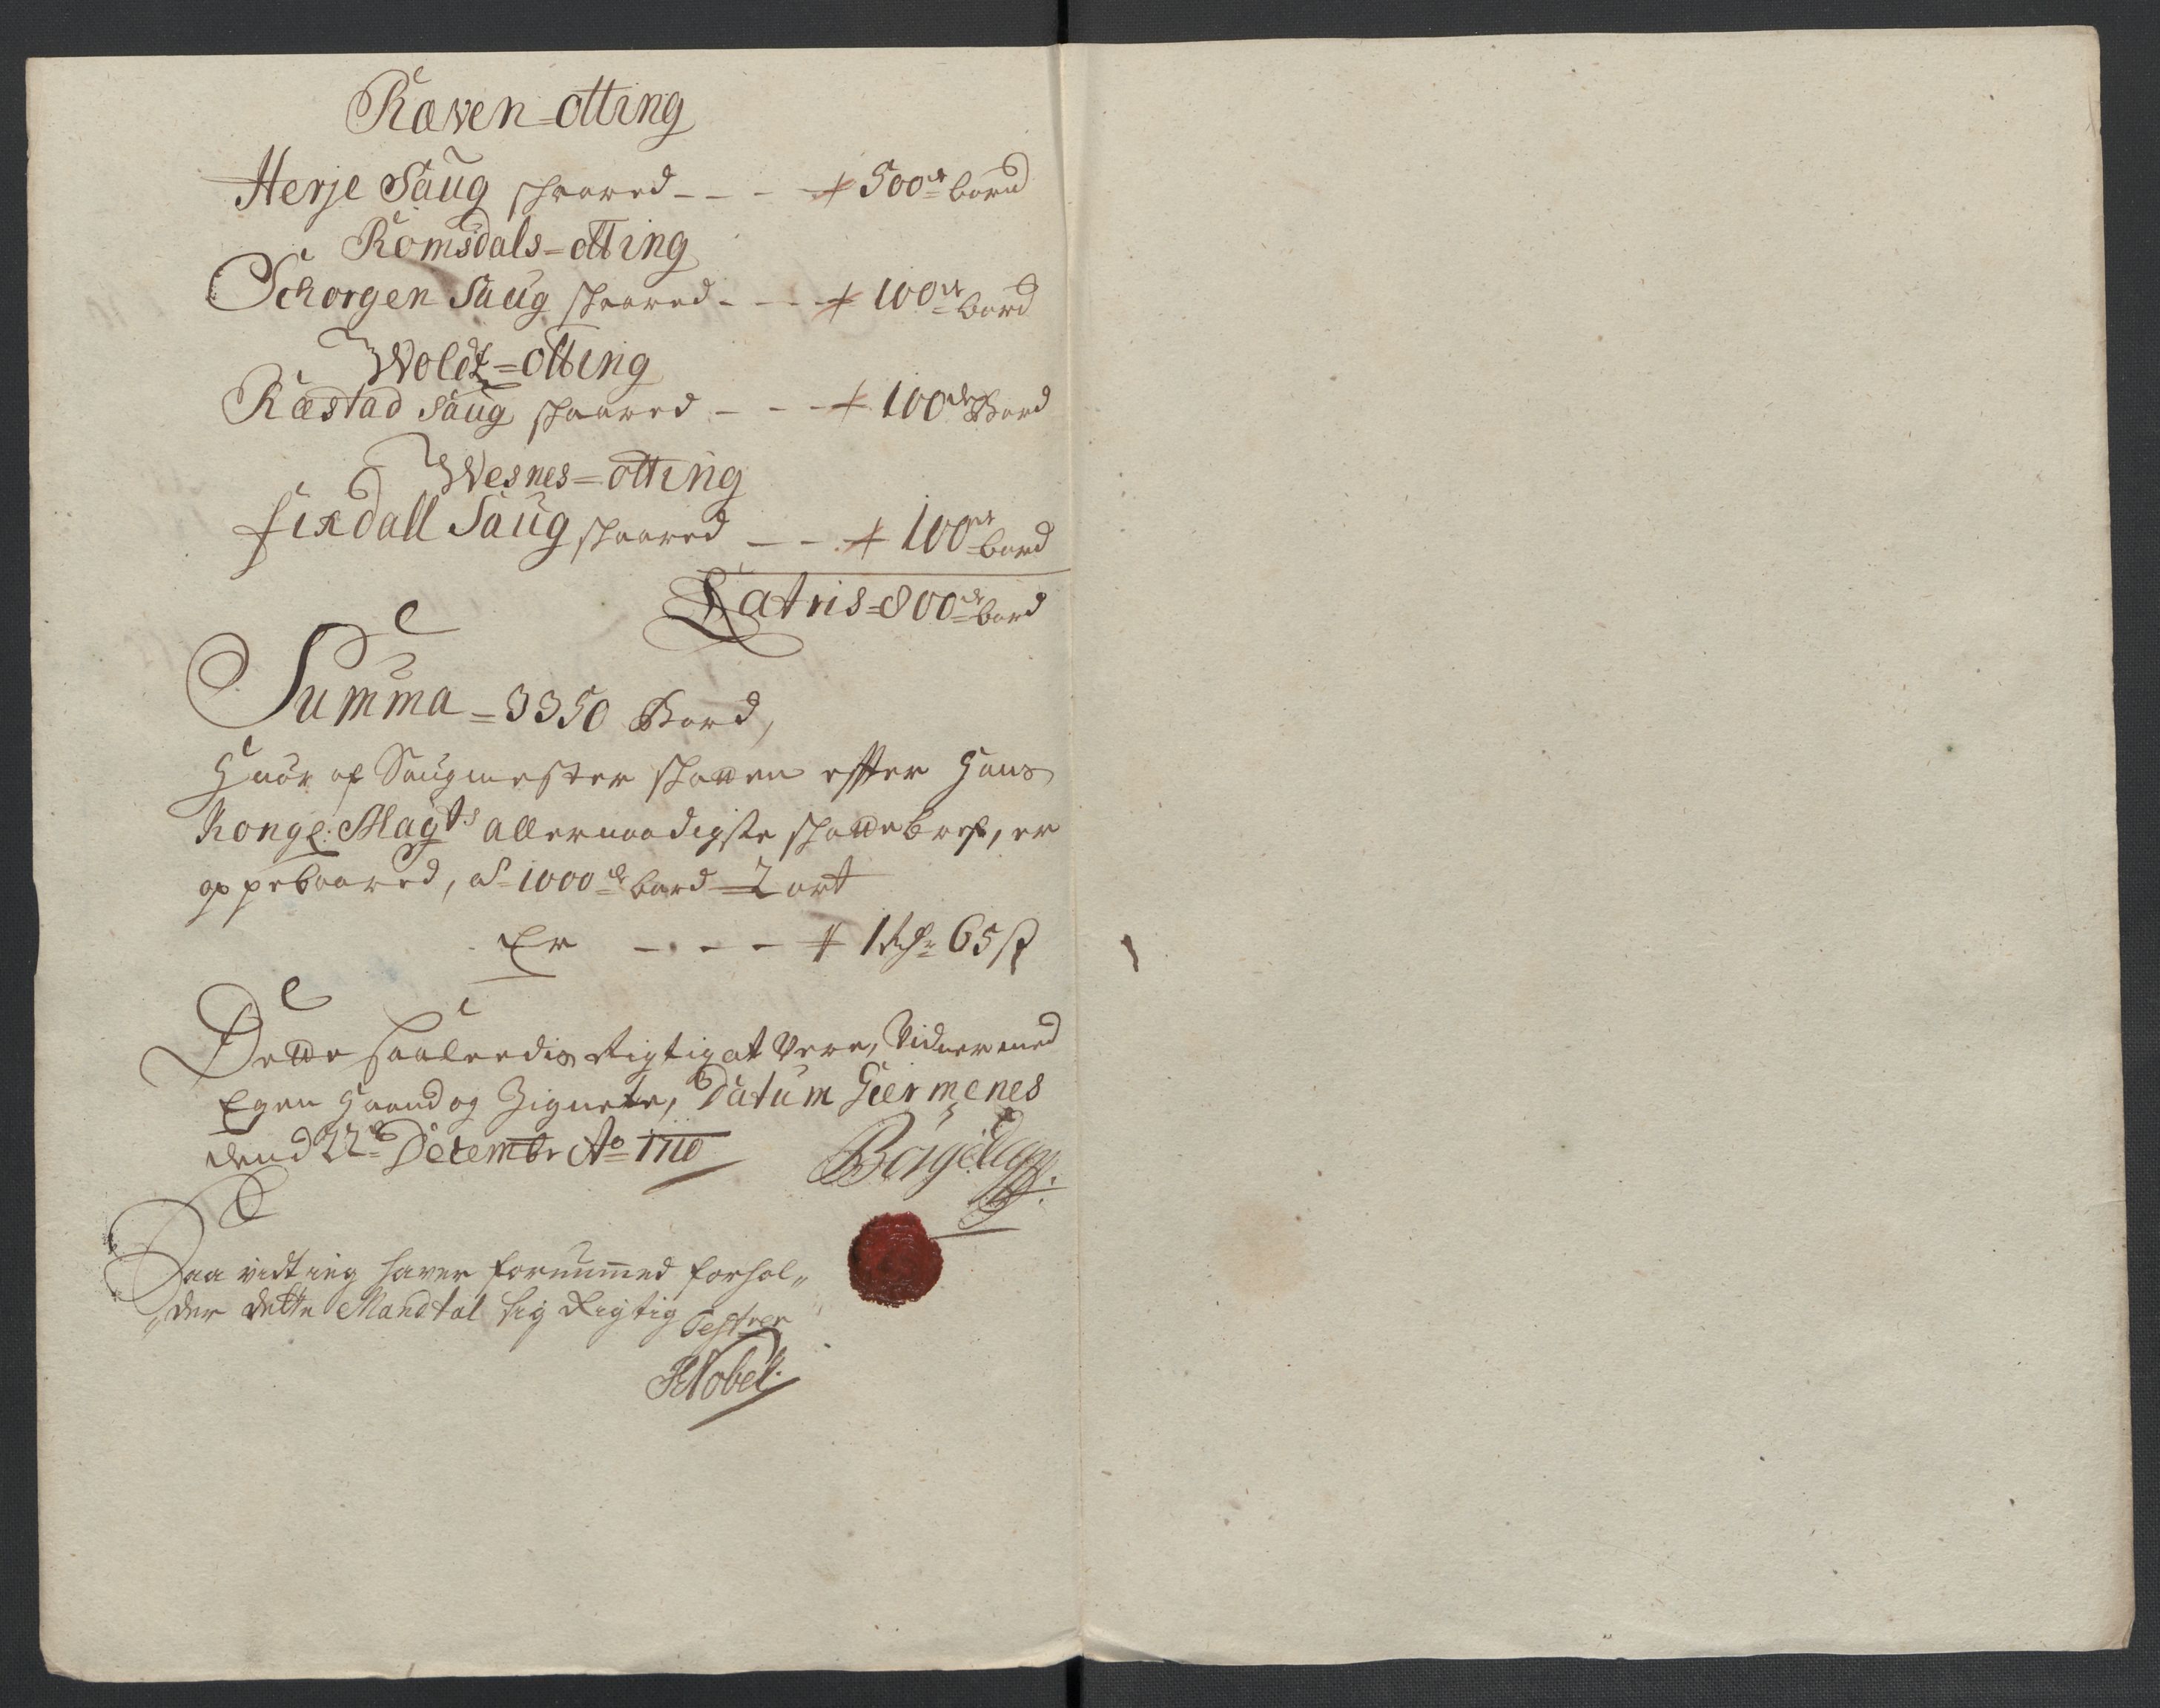 Ræven-otting
Herje Saug skaared - - - + 500de bord
Romsdals-otting
Schorgen Saug skaared - - - + 100de bord
Woldz=otting
Ræstad Saug skaared - - - + 100de Bord
Wesnes=otting
fixdall Saug skaared - - - + 100de bord
Latris=800de bord
Summa=3350 Bord,
Huor af Saugmester skatten effter Hans
Kongl: Mayts allernaadigste skattebref, er
oppebaared, af 1000de bord 2 ort
Er - - - - + 1 Rdr 65 ß
Dette saaleedis Rigtig at Vere, Vidner med
Egen Haand og Zignete, Datum Giermenes
dend 22de Decembr Ao 1710
Saa vidt ieg haver fornummed forhol„
„der dette Mandtal sig Rigtig Testerer
Nobel.